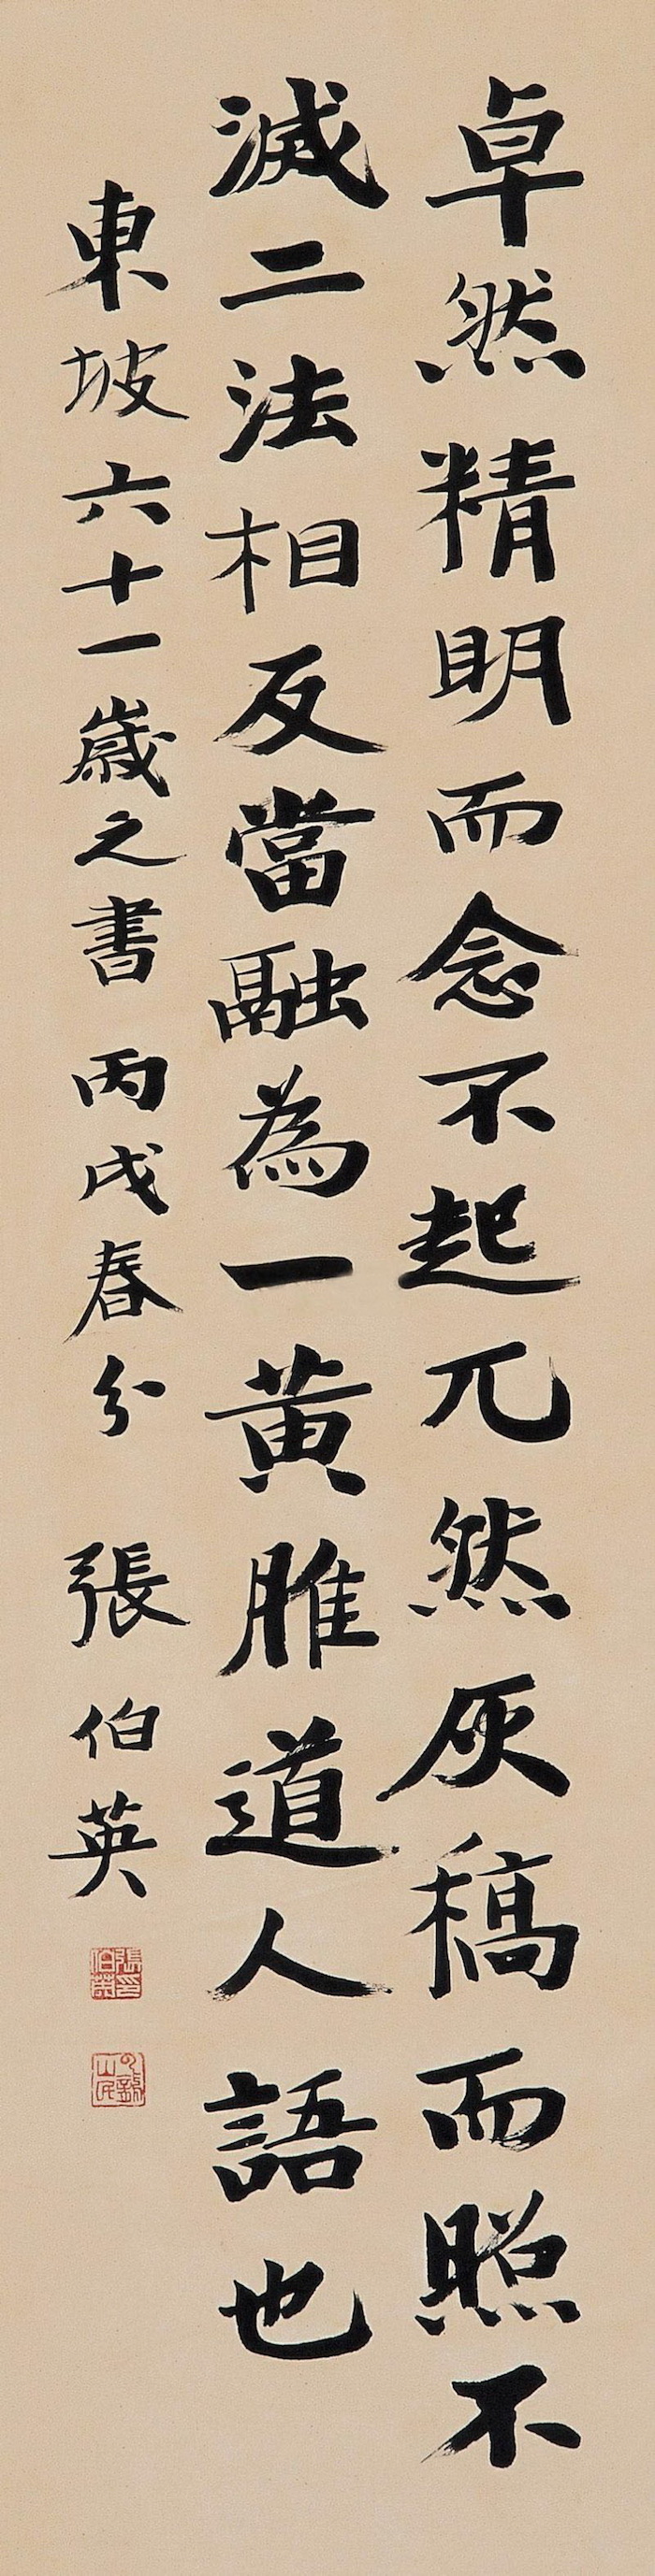 卓然精明而念不起兀然灰槁而照不
滅二法相反當融為一黃雎道人語也
東坡六十一歲之書 丙戌春分 張伯英
張伯英印